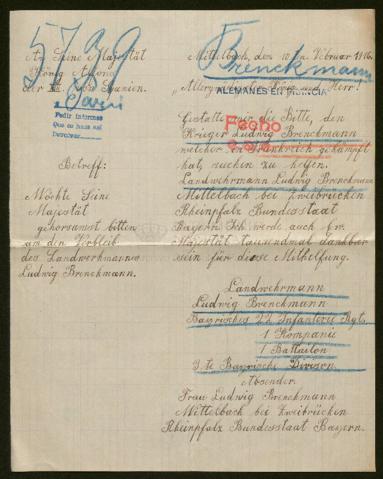 5739
An Seine Majestät
König Alfons
der XIII. von Spanien.
Pedir informes
Que se haga así
Betreff:
Möchte Seine
Majestät
gehorsamst bitten
um den Verbleib
des Landwehrmannes
Ludwig Brenckmann.
Mittelbach, den 10. Februar 1916.
Brenckmann
ALEMANES EN FRANCIA
Gestatte mir die Bitte, den
Krieger Ludwig Brenckmann
Fecho
welcher in Frankreich gekämpft
hat, suchen zu helfen.
Landwehrmann Ludwig Brenckmann
Mittelbach bei Zweibrücken
Rheinpfalz Bundesstaat
Bayern. Ich werde auch Ew.
Majestät tausendmal dankbar
sein für diese Mithilfung.
Landwehrmann
Ludwig Brenckmann
Bayrisches 22 Infanterie Rgt.
1 Kompanie
1 Battailon
3. te Bayrische Division
Absender.
Frau Ludwig Brenckmann
Mittelbach bei Zweibrücken
Rheinpfalz Bundesstaat Bayern.